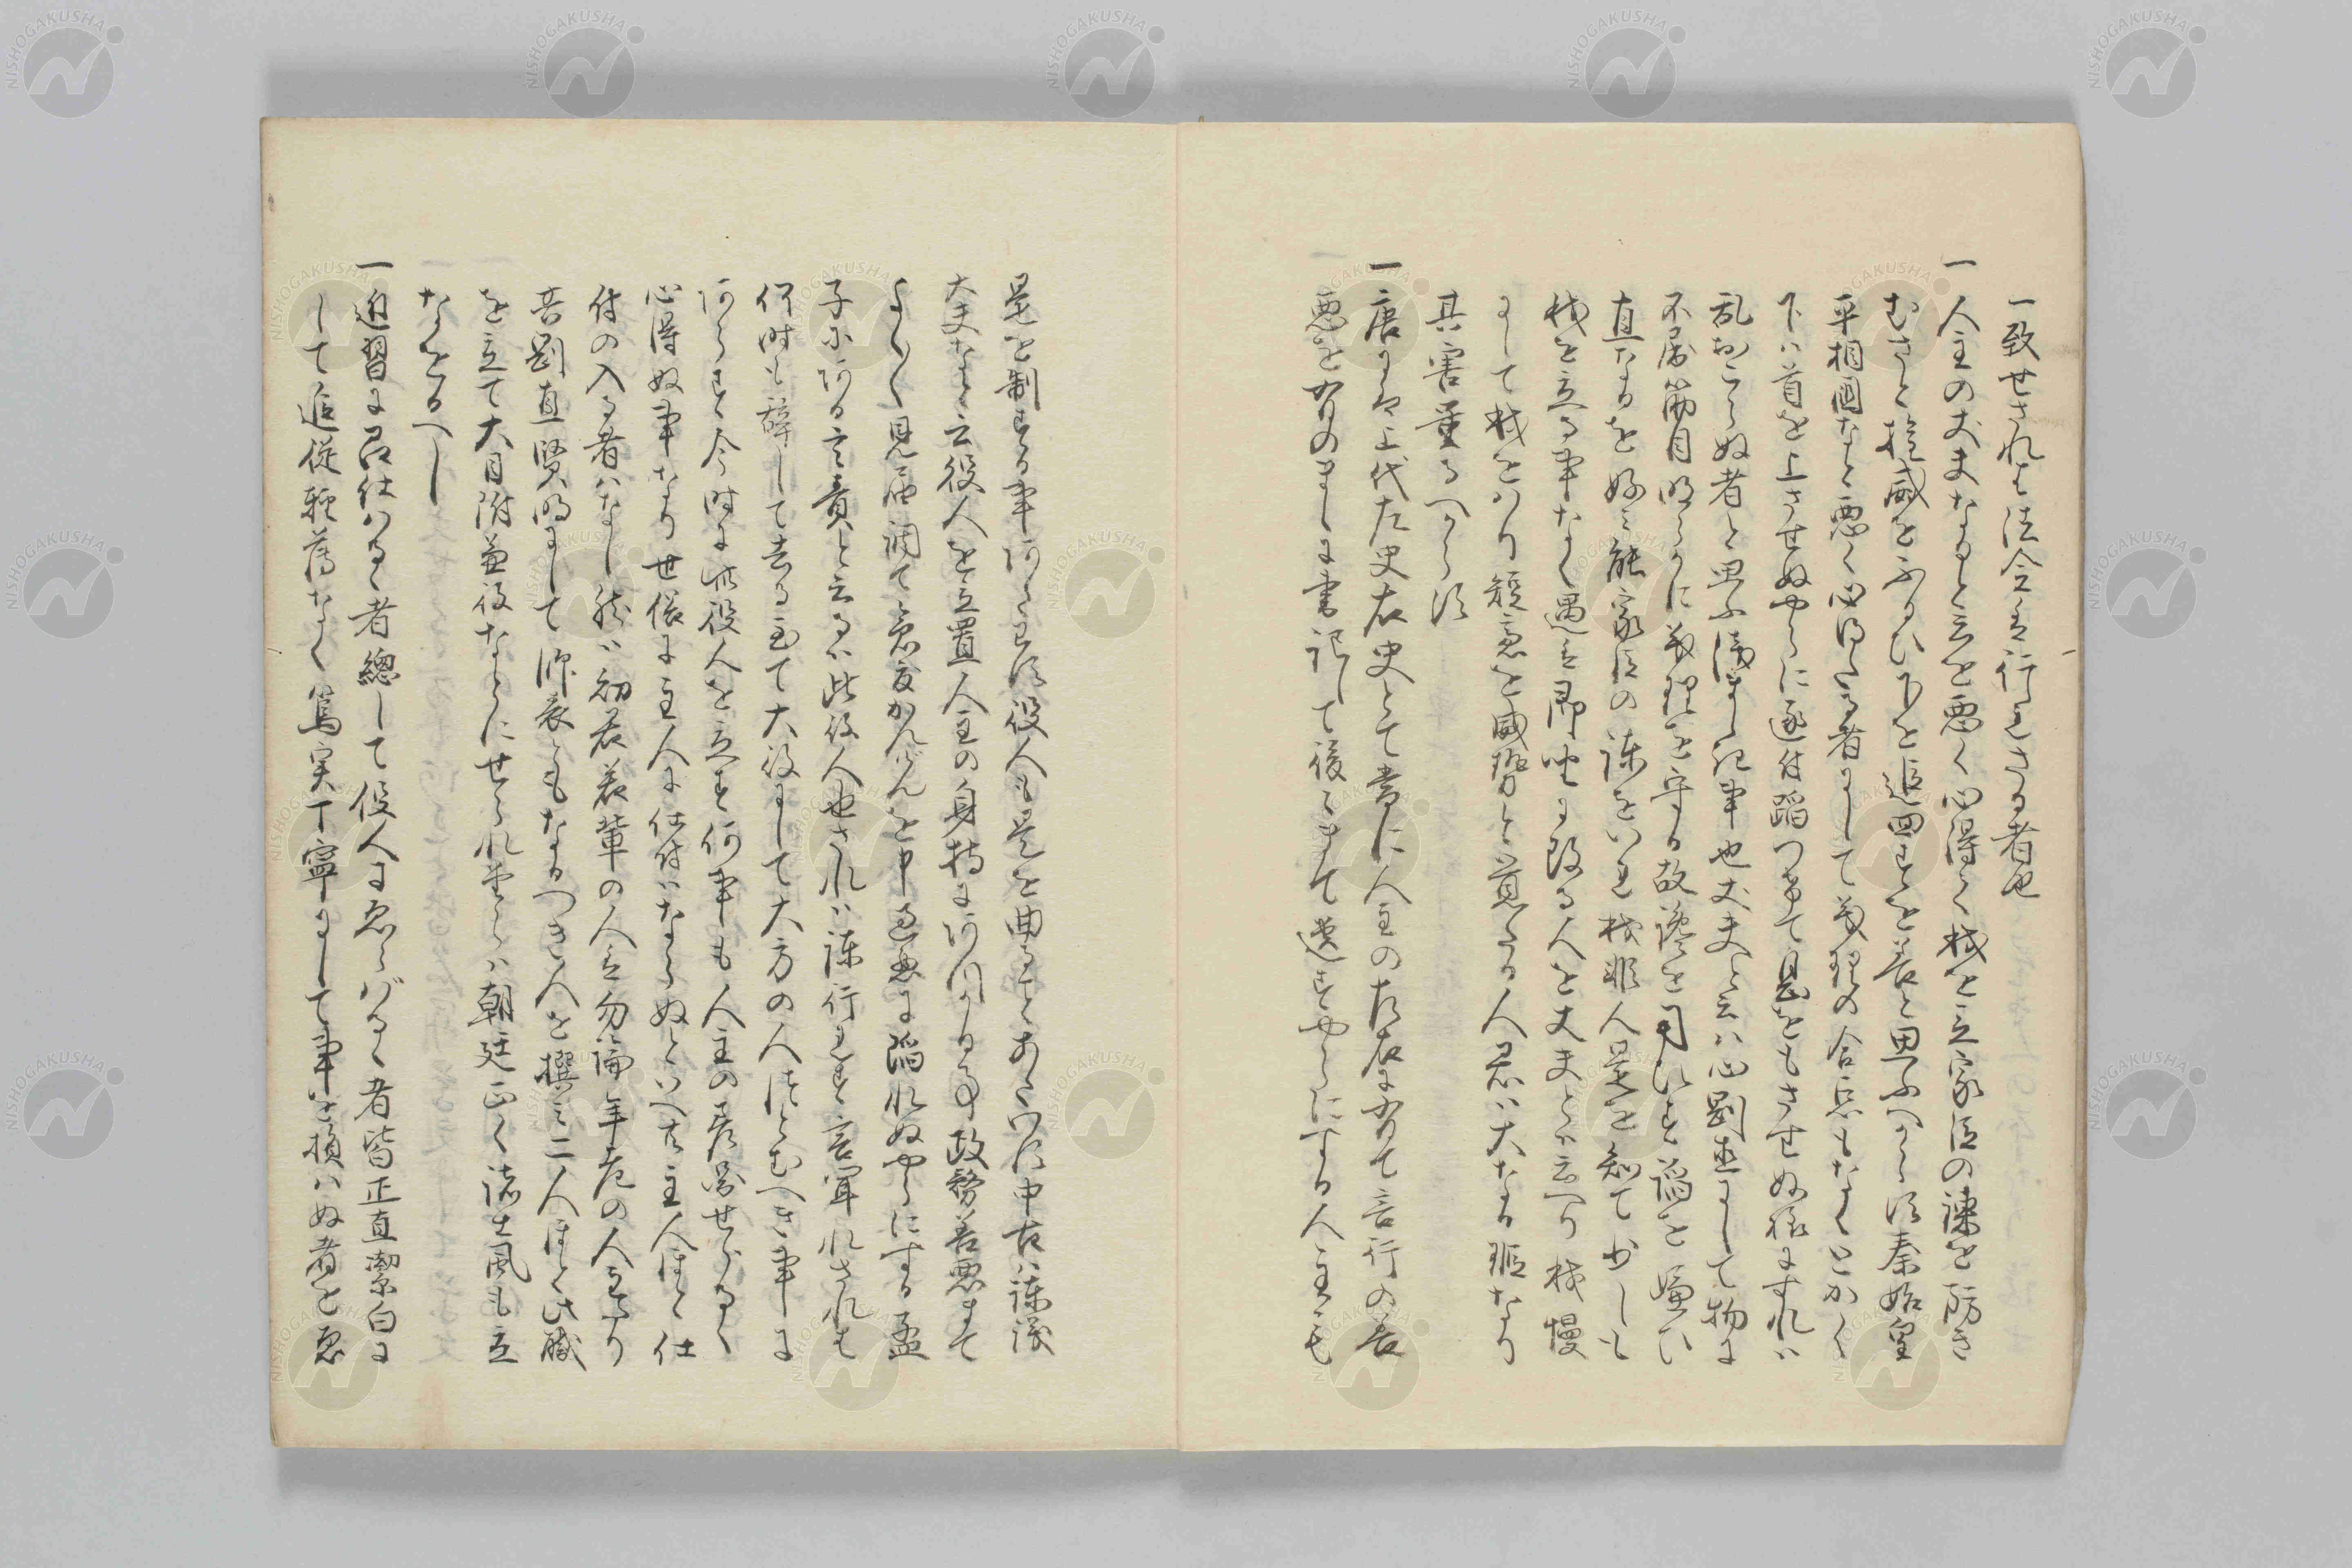 一致せされは法令立行はさる者也
一人主の丈夫なると云を悪く心得て我を立家臣の諫を防き
むさと権威をふるひ下を追回すを善と思ふへからす秦始皇
平相國なと悪く心得たる者にして義理の合点もなくとかく
下は首を上させぬやうに逐付蹈つけて息をもさせぬ様にすれは
乱おこらぬ者と思ふ浅ましき事也丈夫と云は心剛直にして物に
不屈筋目明らかに義理を守る故讒を用ひす謟を嫌ひ
直なるを好み能家臣の諫をいれ我非人是を知て少しも
我を立る事なく過を即座に改る人を丈夫とは云へり我慢
にして我をはり短慮を威勢と覚たる人君は大なる瑕なり
其害重るへからす
一唐には上代左史右史とて常に人主の左右に有て言行の善
悪を有のまゝに書記して後々まて遺すやうにする人主も
是を制する事ならす役人も是を曲ることあたはす中古は諫議
大夫なと云役人を立置人主の身持にあつかる事政務善悪まて
よく〳〵見届調て急度かんげんを申過悪に陥れぬやうにする孟
子にある言責と云るは此役人也されは諫行はれす言聞れされは
何時も辞して去る至て大役にして大方の人はつとむへき事に
あらす今時は此役人を立す何事も人主の君忠せらるゝ
心得ぬ事なり世俗に主人に仕付はならぬといへ共主人ほと仕
付の入る者はなし然は初君若輩の人は勿論年老の人たり
共剛直賢明にして師表ともなるへき人を撰み二人ほと此職
を立て大目附兼役なとにせられ候はゝ朝廷正く諸士風も立
なをるへし
一近習に召仕はるゝ者總して役人にゑらばるゝ者皆正直潔白に
して追従軽薄なく篤実丁寧にして事を損はぬ者を忍